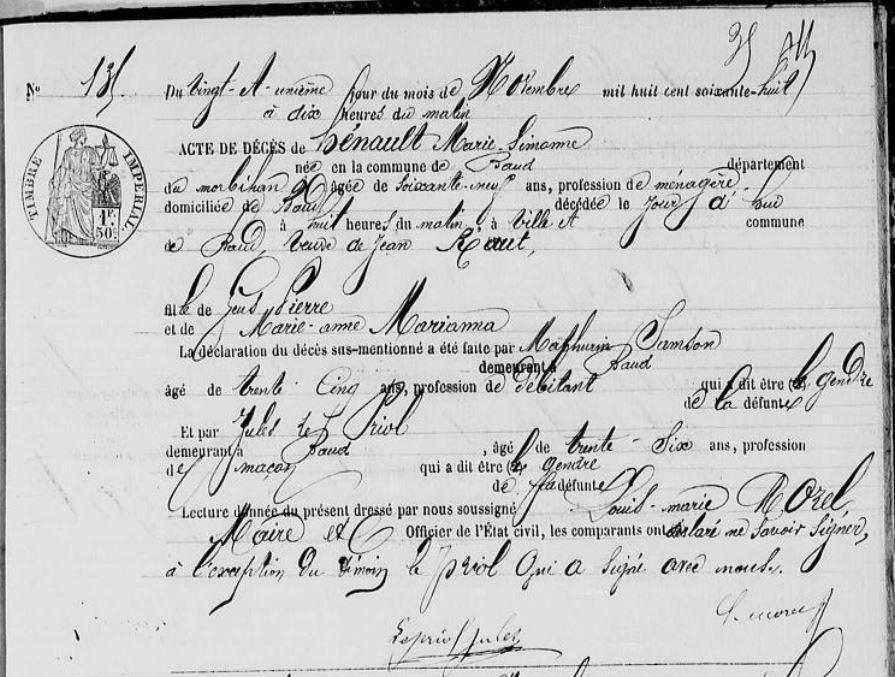 No 135. 35
Du vingt-et-unième jour du mois de Novembre mil huit cent soixante-huit
à dix heures du matin
ACTE DE DÉCÈS de hénault Marie-Simonne
née en la commune de Baud département
du morbihan âgée de soixante-neuf ans, profession de ménagère
domiciliée de Baud décédée le jour d'hui
à huit heures du matin, à ville et commune
de Baud, veuve de Jean Raut,
TIMBRE IMPÉRIAL.
1F. 50c.
fille de feus Pierre
et de Marie-anne Marianna
La déclaration du décès sus-mentionné a été faite par Mathurin Samson
demeurant à Baud
âgé de trente-Cinq ans, profession de débitant qui a dit être le gendre
de la défunte
Et par Jules Le Priol
demeurant à Baud, âgé de trente-Six ans, profession
de maçon qui a dit être le gendre
de la défunte
Lecture donnée du présent dressé par nous soussigné Louis-marie Morel
Maire et Officier de l'État civil, les comparants ont déclaré ne savoir signer,
à l'exception du témoin le priol qui a signé avec nous.
Lepriol Jules